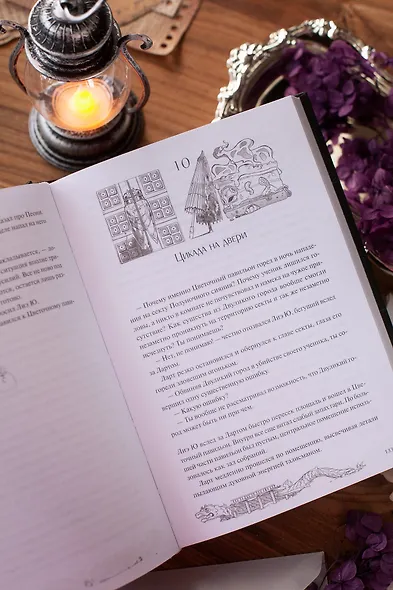 азал про Пенни,
10
Цикада на двери
— Почему именно Цветочный павильон горел в ночь нападе-
ния на секту Полуночного сияния? Почему ученик лишился го-
ловы, а никто в комнате не почувствовал и намека на чужое при-
сутствие? Как существа из Двуликого города вообще смогли
незаметно проникнуть на территорию секты и так же незаметно
исчезнуть? Ты понимаешь?
— Нет, не понимаю! — честно отозвался Лиэ Ю, бегущий вслед
за Лартом.
Ларт резко остановился и обернулся к главе секты, глаза его
горели зловещим огоньком.
— Обвинив Двуликий город в убийстве своего ученика, ты со-
вершил одну существенную ошибку.
— Какую ошибку?
— Ты вообще не рассматривал возможность, что Двуликий го-
род может быть ни при чем.
Лиэ Ю вслед за Лартом быстро пересек площадь и вошел в Цве-
точный павильон. Внутри все еще витал слабый запах гари. По боль-
шей части павильон был пустым, центральное помещение исполь-
зовалось как зал собраний.
Ларт медленно прошелся по помещению, высвечивая детали
пылающим духовной энергией талисманом.